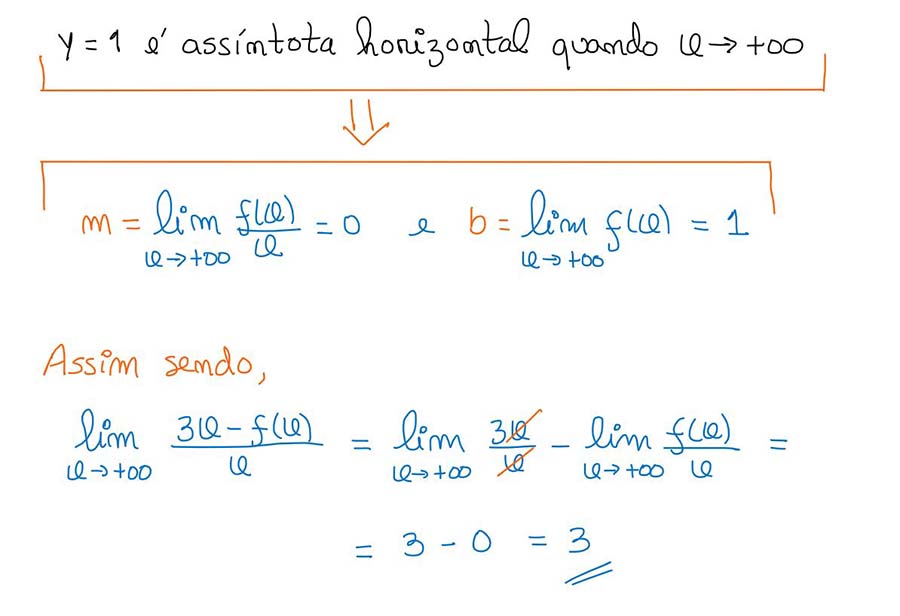 y = 1 é assíntota horizontal quando x → +∞
⇓
m = lim f(x)/x = 0 e b = lim f(x) = 1
x→+∞ x→+∞
Assim sendo,
lim (3x - f(x))/x = lim 3x/x - lim f(x)/x =
x→+∞ x→+∞ x→+∞
= 3 - 0 = 3